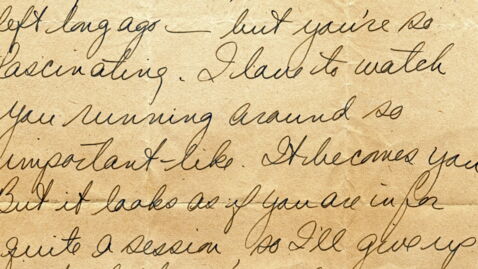 left long ago — but you're so
fascinating. I love to watch
you running around so
important-like. It becomes you
But it looks as if you are in for
quite a session, so I'll give up